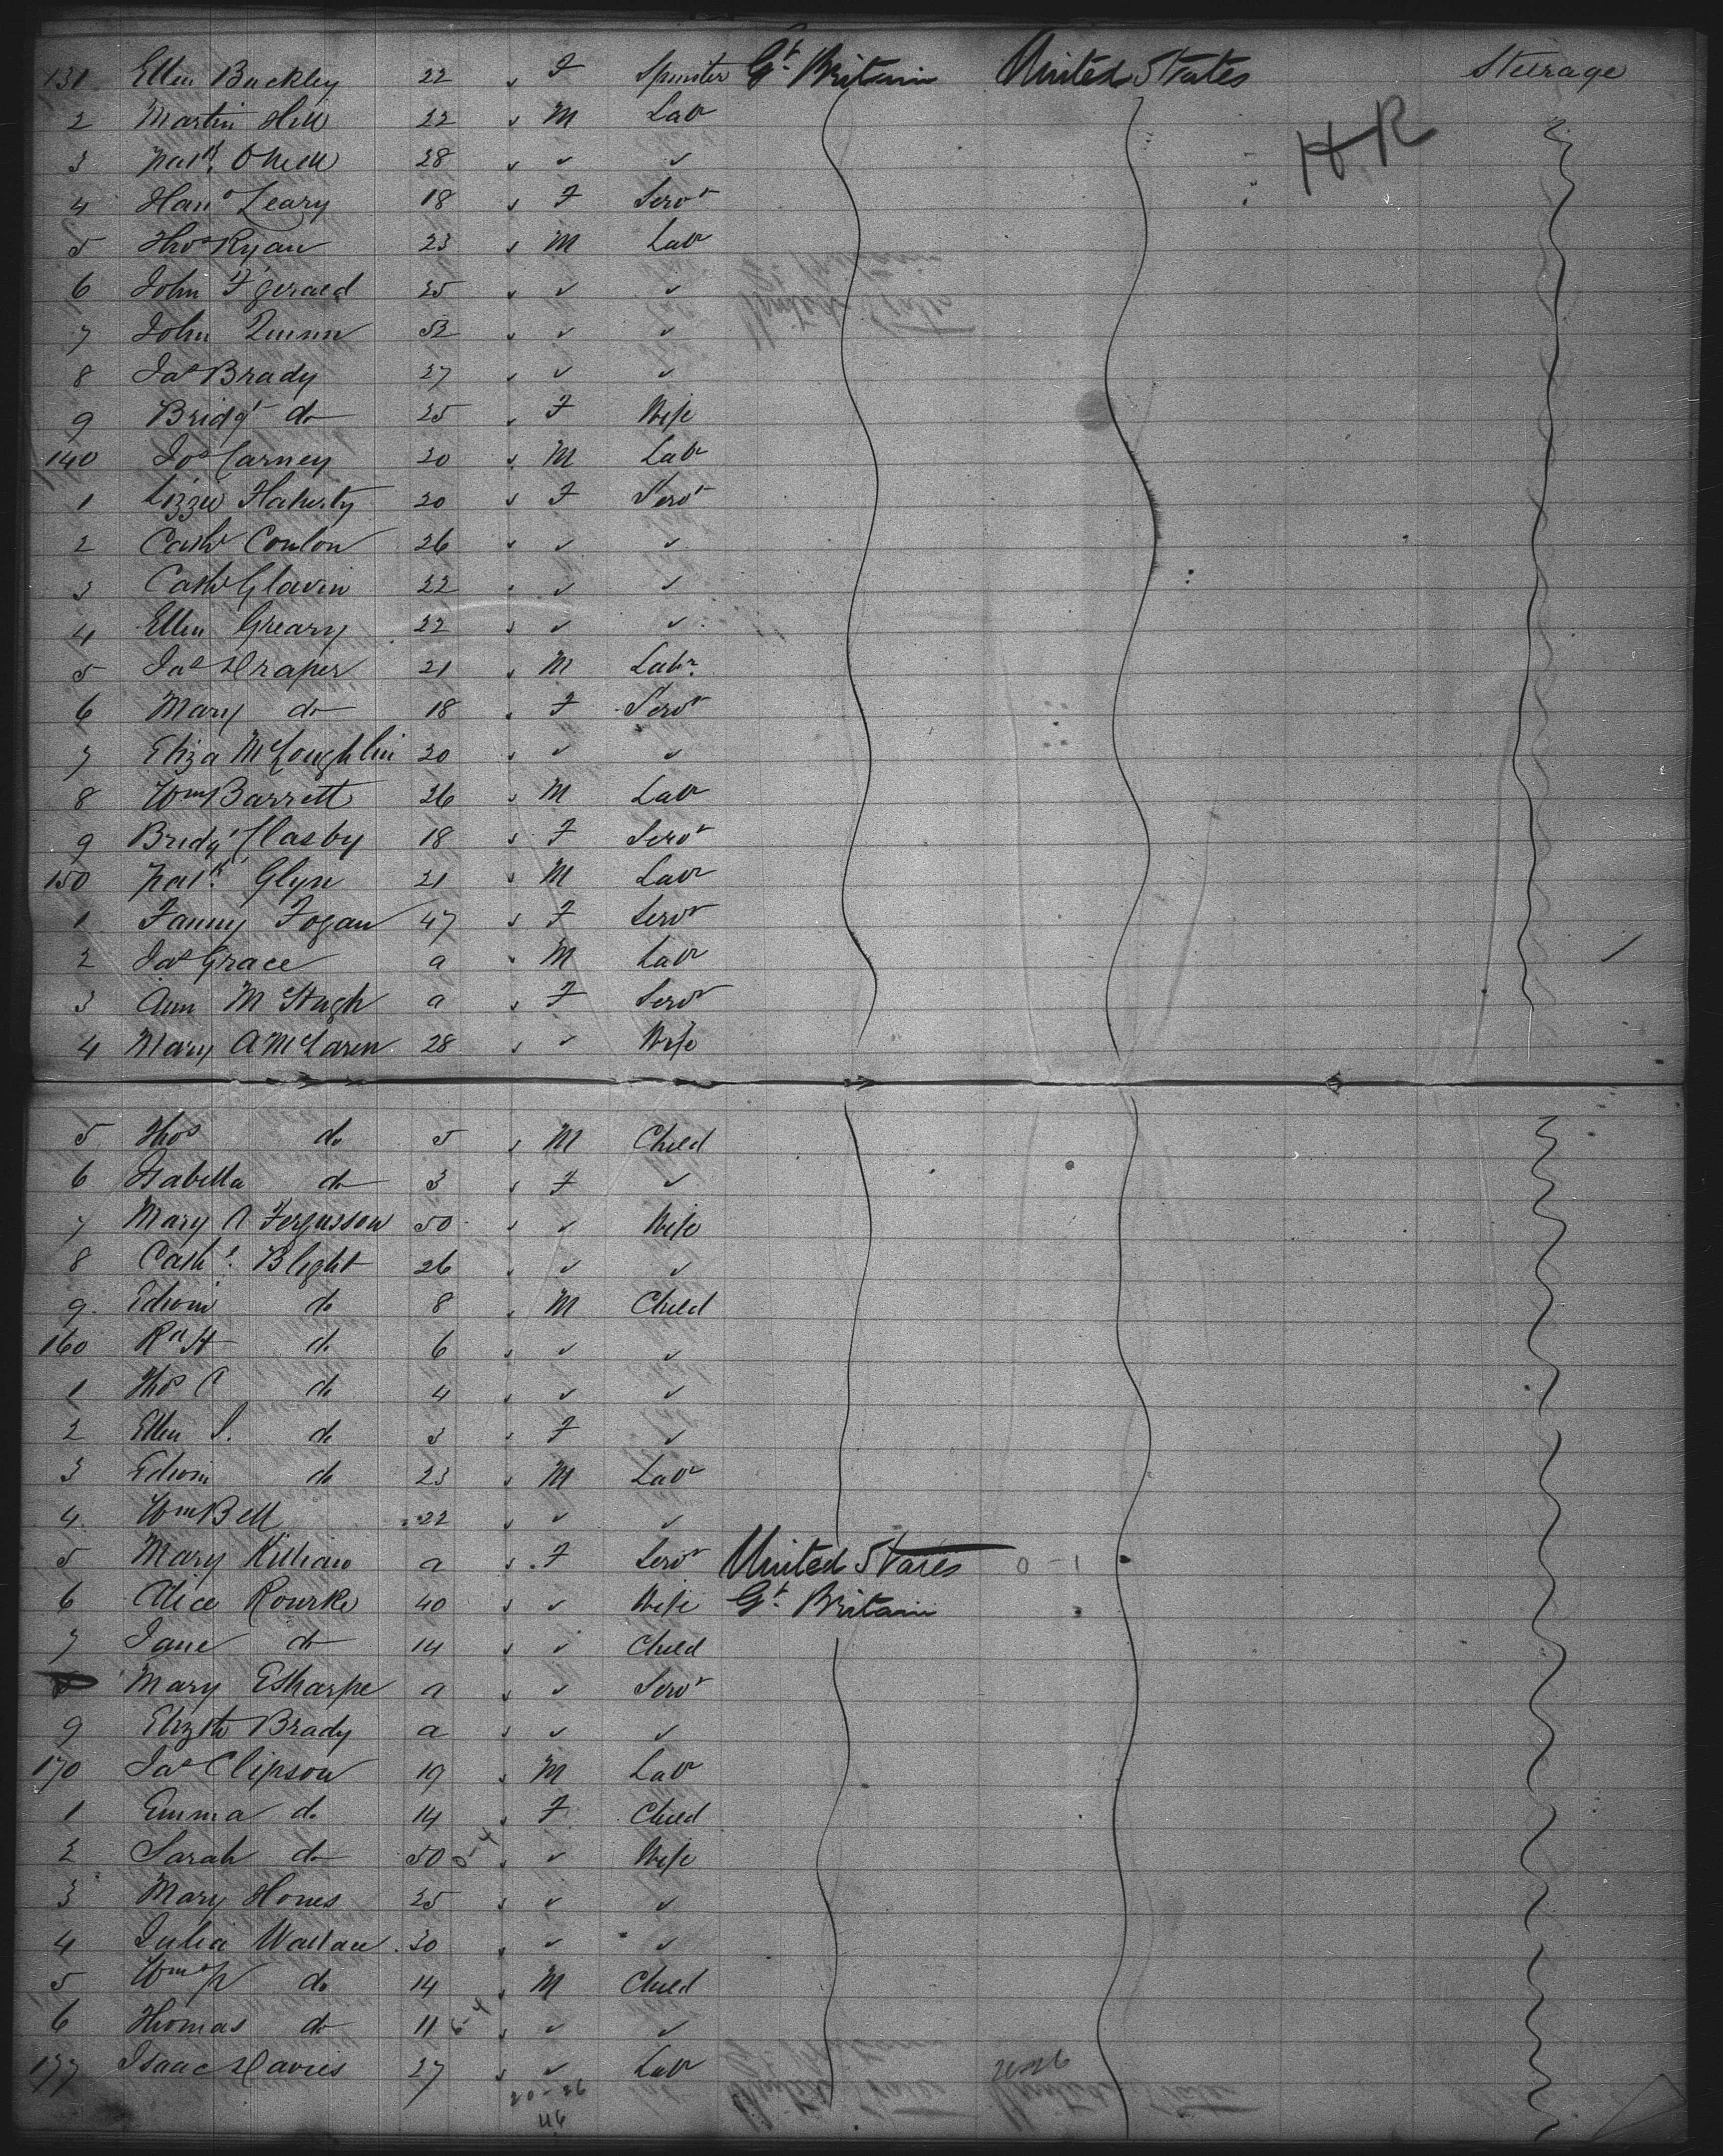 131 Ellen Buckley 22 F Spinster Gt. Britain United States Steerage
2 Martin Hill 22 M Labr HR
3 Patk. ONeill 28 ✓ ✓
4 Hano Leary 18 F Servt
5 Thos Ryan 23 M Labr
6 John F'gerald 25 ✓ ✓
7 John Quinn 52 ✓ ✓
8 Jas Brady 27 ✓ ✓
9 Bridgt do 25 F Wife
140 Jos Carney 20 M Labr
1 Lizzie Flaherty 20 F Servt
2 Cathe Conlon 26 ✓ ✓
3 Cathe Glavin 22 ✓ ✓
4 Ellen Greary 22 ✓ ✓
5 Jas Draper 21 M Labr.
6 Mary do 18 F Servt
7 Eliza McLoughlin 20 ✓ ✓
8 Wm Barrett 26 M Labr
9 Bridgt Clasby 18 F Servt
150 Patk. Glyn 21 M Labr
1 Fanny Fogan 47 F Servt
2 Jas Grace a M Labr
3 Ann McHugh a F Servt
4 Mary A McLaren 28 ✓ Wife
5 Thos do 5 M Child
6 Isabella do 3 F ✓
7 Mary A Fergusson 50 ✓ Wife
8 Cathe. Blight 26 ✓ ✓
9. Edwin do 8 M Child
160 Rd H do 6 ✓ ✓
1 Thos C do 4 ✓ ✓
2 Ellen S. do 3 F ✓
3 Edwin do 23 M Labr
4. Wm Bell 22 ✓ ✓
5 Mary Killian a F Servt United States 0-1
6 Alice Rourke 40 ✓ Wife Gt. Britain
7 Jane do 14 ✓ Child
8 Mary E Sharpe a ✓ Servt
9 Elizth Brady a ✓ ✓
170 Jas Clipson 19 M Labr
1 Emma do 14 F Child
2 Sarah do 50 ✓ Wife
3 Mary Hones 25 ✓ ✓
4 Julia Wallace 30 ✓ ✓
5 Wm P do 14 M Child
6 Thomas do 11 ✓ ✓
177 Isaac Davies 27 ✓ Labr
20-26
46